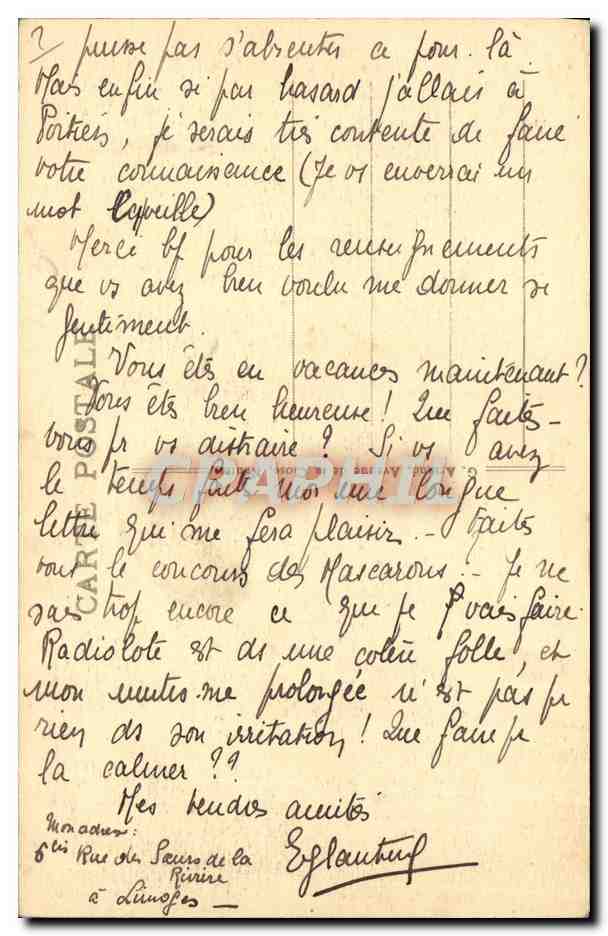 2/ puisse pas s'absenter à pour là.
Mais enfin si par hasard j'allais à
Poitiers, je serais très contente de faire
votre connaissance (Je vs enverrai un
mot la veille)
Merci bf pour les renseignements
que vs avez bien voulu me donner si
gentiment.
Vous êtes en vacances maintenant?
Vous êtes bien heureuse! Que faites-
vous pr vs distraire? Si vs avez
le temps faites moi une longue
lettre qui me fera plaisir. - Faites
vous le concours des Mascarons. - Je ne
sais trop encore ce que je vais faire.
Radiolote est ds une colère folle, et
mon mutisme prolongé n'est pas pr
rien ds son irritation! Que faire pr
la calmer??
Mes tendres amitiés
Eglantine
Mon adresse:
6bis Rue des Sœurs de la
Rivière
à Limoges -
CARTE POSTALE
CPAPHIL